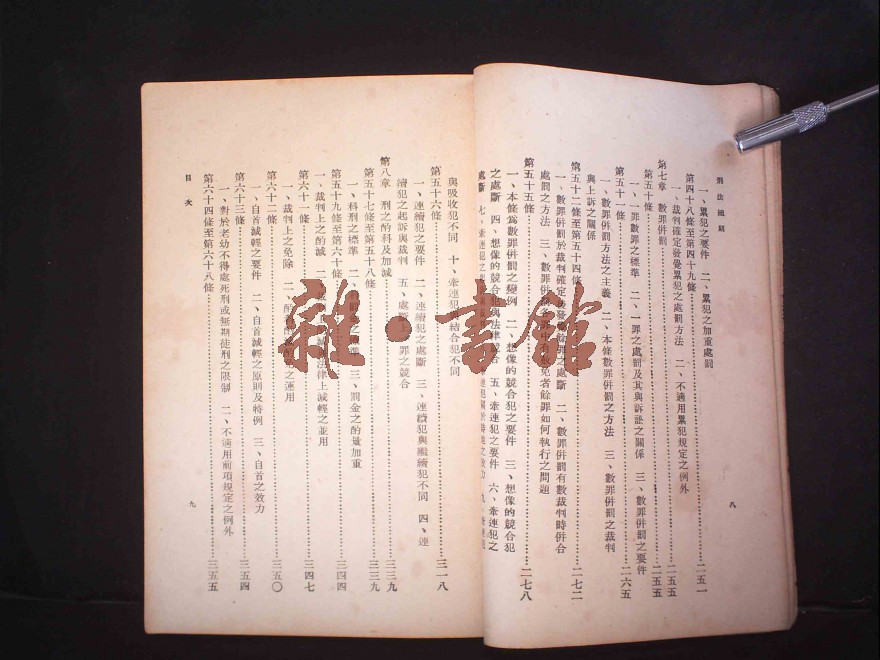 刑法總則
一、累犯之要件　二、累犯之加重處罰
第四十八條至第四十九條……二五一
一、裁判確定發覺累犯之處罰方法　二、不適用累犯規定之例外
第七章　數罪併罰……二五五
第五十條……二五五
一、一罪數罪之標準　二、一罪之處罰及其與訴訟之關係　三、數罪併罰之要件
第五十一條……二六五
一、數罪併罰方法之主義　二、本條數罪併罰之方法　三、數罪併罰之裁判
與上訴之關係
第五十二條至第五十四條……二七二
一、數罪併罰於裁判確定後發覺餘罪之處斷　二、數罪併罰有數裁判時併合
處罰之方法　三、數罪併罰各罪中有赦免者餘罪如何執行之問題
第五十五條……二七八
一、本條為數罪併罰之變例　二、想像的競合犯之要件　三、想像的競合犯
之處斷　四、想像的競合犯與法律競合　五、牽連犯之要件　六、牽連犯之
處斷　七、牽連犯之
八
與吸收犯不同　十、牽連犯與結合犯不同
第五十六條……三一八
一、連續犯之要件　二、連續犯之處斷　三、連續犯與繼續犯不同　四、連
續犯之起訴與裁判　五、處斷上一罪之競合
第八章　刑之酌科及加減……三三九
第五十七條至第五十八條……三三九
一、科刑之標準　二、科罰金之標準　三、罰金之酌量加重
第五十九條至第六十條……三四四
一、裁判上之酌減　二、裁判上酌減與法律上減輕之並用
第六十一條……三四七
一、裁判上之免除　二、之運用
第六十二條……三五〇
一、自首減輕之要件　二、自首減輕之原則及特例　三、自首之效力
第六十三條……三五四
一、對於老幼不得處死刑或無期徒刑之限制　二、不適用前項規定之例外
第六十四條至第六十八條……三五五
目次
九
雜·書館